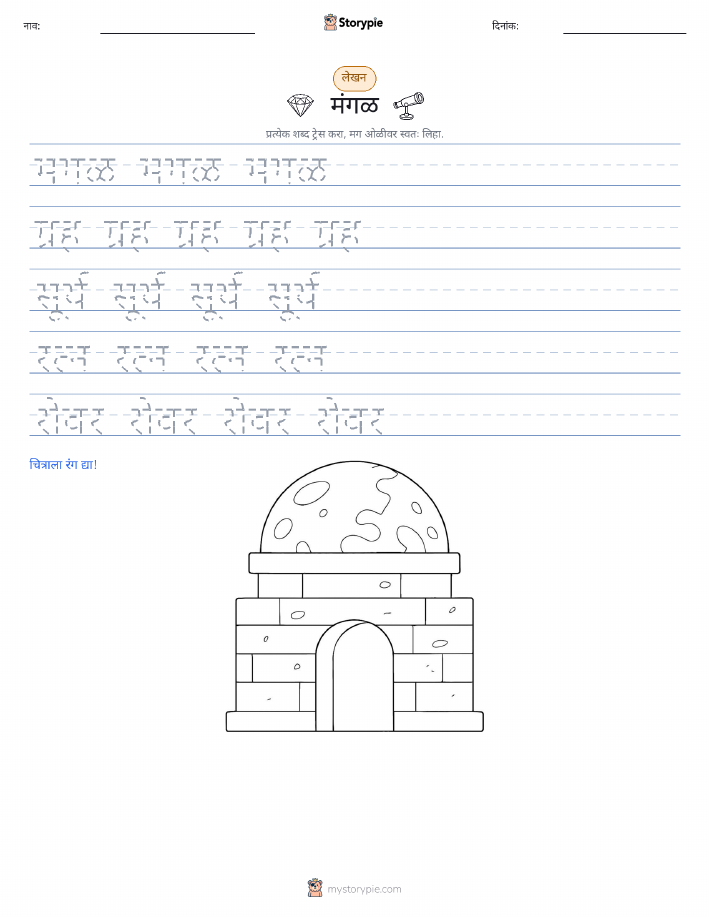 नाव:
Storypie
दिनांक:
लेखन
मंगळ
प्रत्येक शब्द ट्रेस करा, मग ओळीवर स्वतः लिहा.
मंगळ मंगळ मंगळ
ग्रह ग्रह ग्रह ग्रह ग्रह
सूर्य सूर्य सूर्य सूर्य
रत्न रत्न रत्न रत्न
रोवर रोवर रोवर रोवर
चित्राला रंग द्या!
mystorypie.com